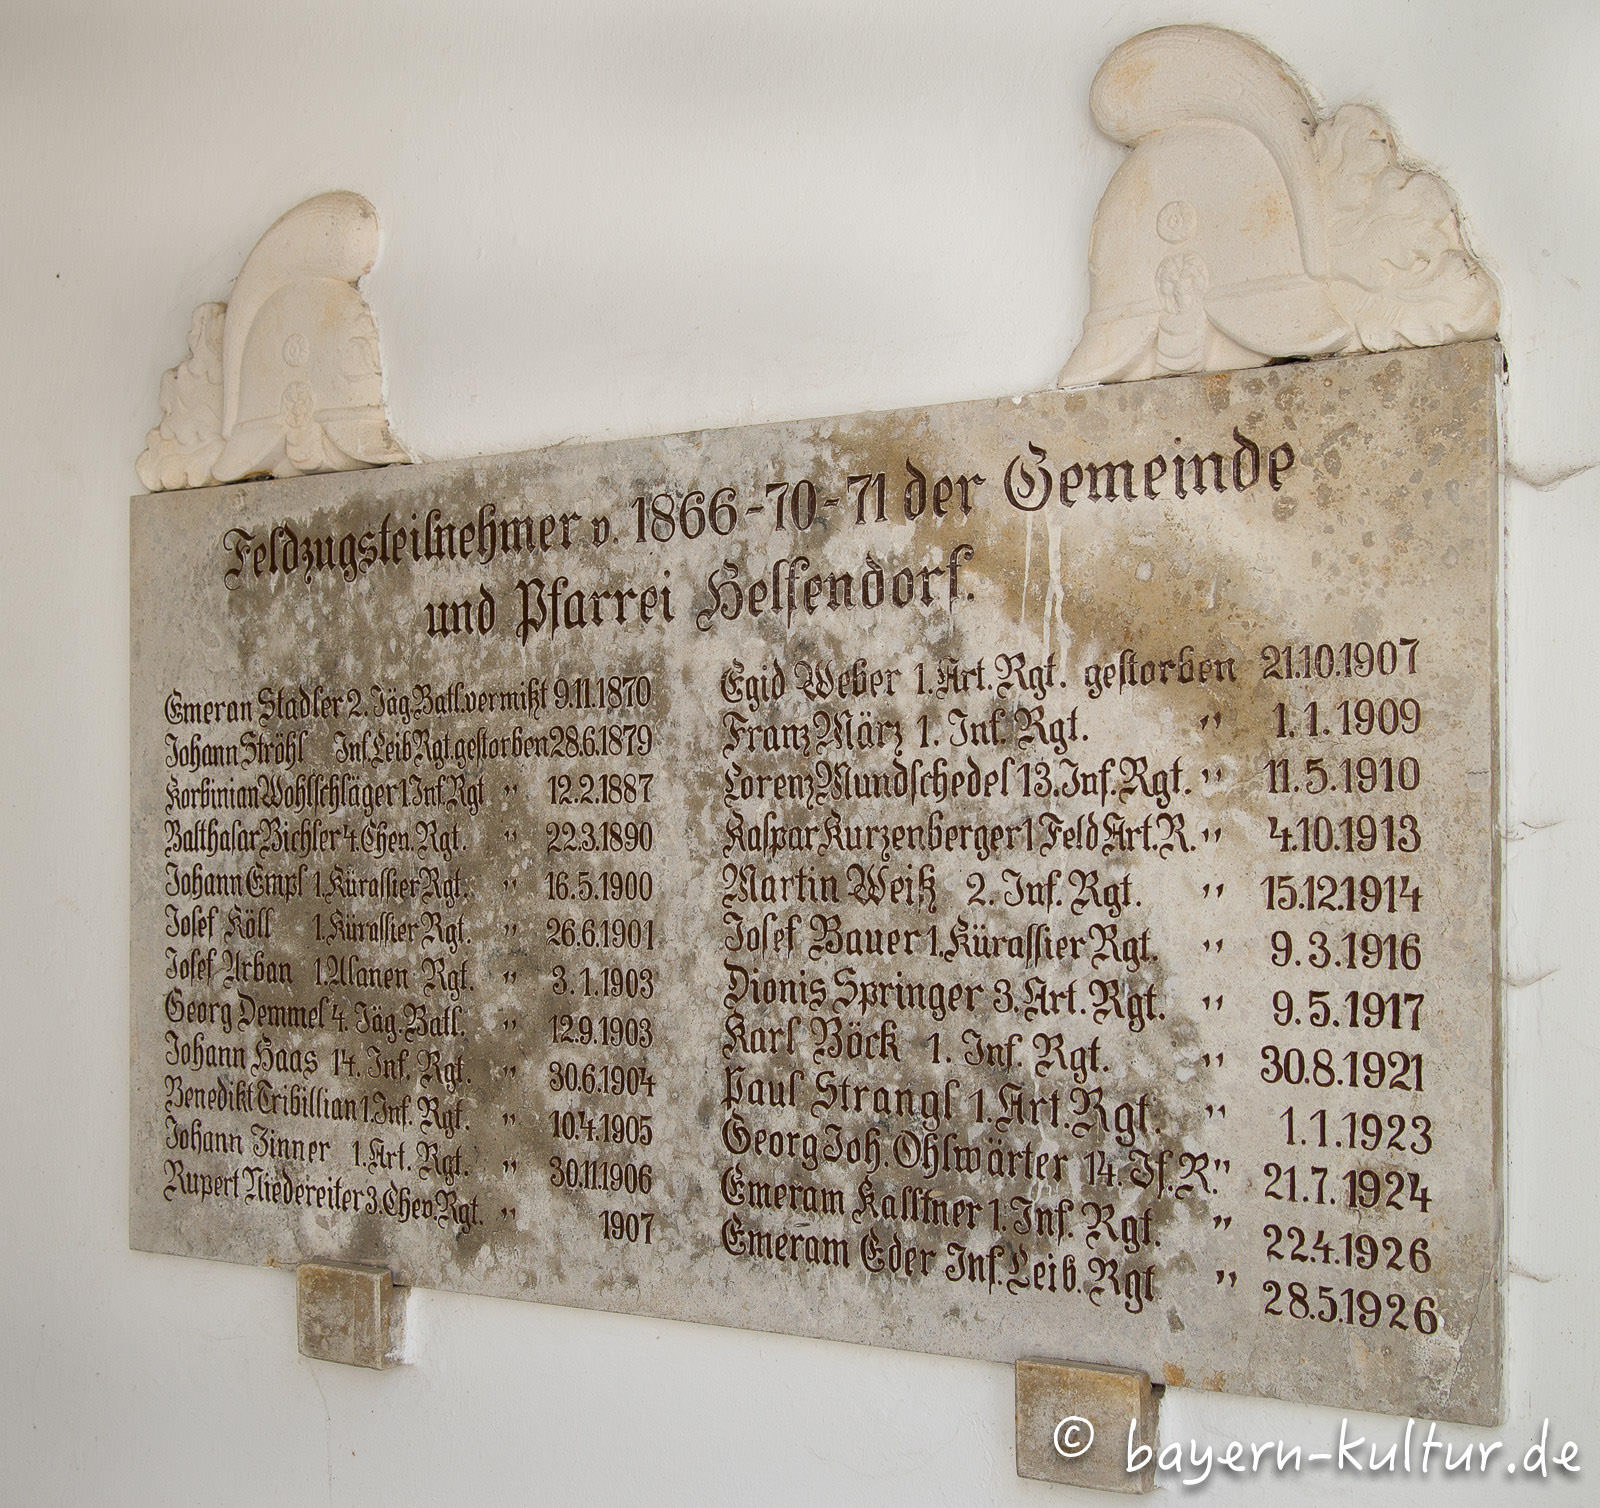 Feldzugsteilnehmer v. 1866-70-71 der Gemeinde
und Pfarrei Helfendorf.
Emeran Stadler 2. Jäg. Batl. vermißt 9.11.1870
Johann Ströhl Inf. Leib Rgt. gestorben 28.6.1879
Korbinian Wohlschläger 1. Inf. Rgt " 12.2.1887
Balthasar Bichler 4. Chen. Rgt. " 22.3.1890
Johann Empl 1. Kürassier Rgt. " 16.5.1900
Josef Köll 1. Kürassier Rgt. " 26.6.1901
Josef Urban 1. Ulanen Rgt. " 3.1.1903
Georg Demmel 4. Jäg. Batl. " 12.9.1903
Johann Haas 14. Inf. Rgt. " 30.6.1904
Benedikt Tribillian 1. Inf. Rgt. " 10.4.1905
Johann Zinner 1. Art. Rgt. " 30.11.1906
Rupert Niedereiter 3. Chev. Rgt. " 1907
Egid Weber 1. Art. Rgt. gestorben 21.10.1907
Franz März 1. Inf. Rgt. " 1.1.1909
Lorenz Mundschedel 13. Inf. Rgt. " 11.5.1910
Kaspar Kurzenberger 1 Feld Art. R. " 4.10.1913
Martin Weiß 2. Inf. Rgt. " 15.12.1914
Josef Bauer 1. Kürassier Rgt. " 9.3.1916
Dionis Springer 3. Art. Rgt. " 9.5.1917
Karl Böck 1. Inf. Rgt. " 30.8.1921
Paul Strangl 1. Art. Rgt. " 1.1.1923
Georg Joh. Ohlwärter 14. If. R. " 21.7.1924
Emeram Kalltner 1. Inf. Rgt. " 22.4.1926
Emeram Eder Inf. Leib. Rgt " 28.5.1926
© bayern-kultur.de